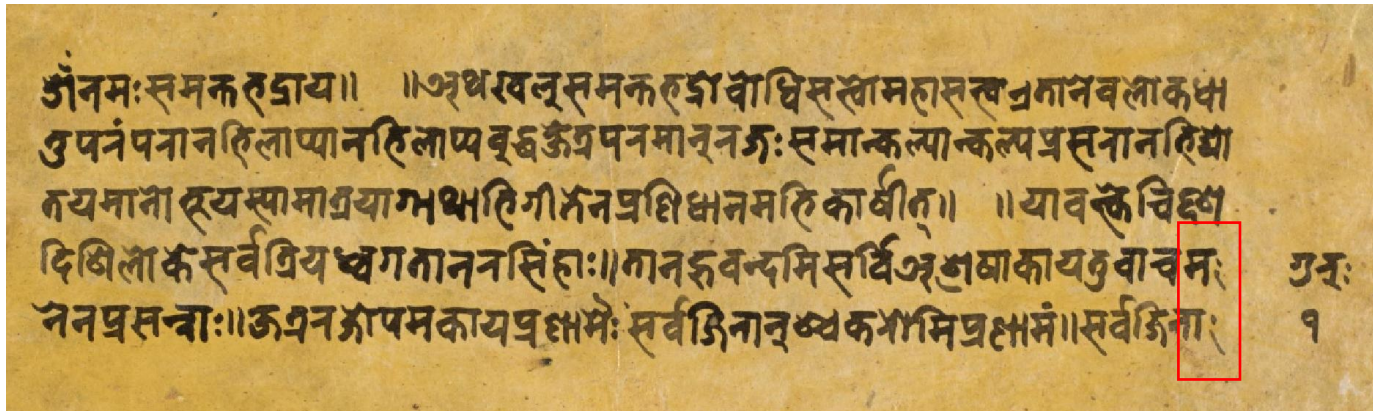 ॐनमःसमन्तभद्राय॥ ॥अथखलुसमन्तभद्रोबोधिसत्त्वोमहासत्त्वएतानेवलोकधा
तुपरंपरानभिलाप्यानभिलाप्यबुद्धक्षेत्रपरमानुरजःसमान्कल्पान्कल्पप्रसरानभिद्यो
तयमानोभूयस्यामात्रयागाथाभिगीतेनप्रणिधानमभिकार्षीत्॥ ॥यावत्केचिद्दश
दिशिलोकेसर्वत्रियध्वगतानरसिंहाः॥तानहवन्दमिसर्विअशेषाकायतुवाचम
नेनप्रसन्नाः॥क्षत्ररजोपमकायप्रणामैः सर्वजिनान्श्चकरोमिप्रणामं॥सर्वजिना
गुरुः
१